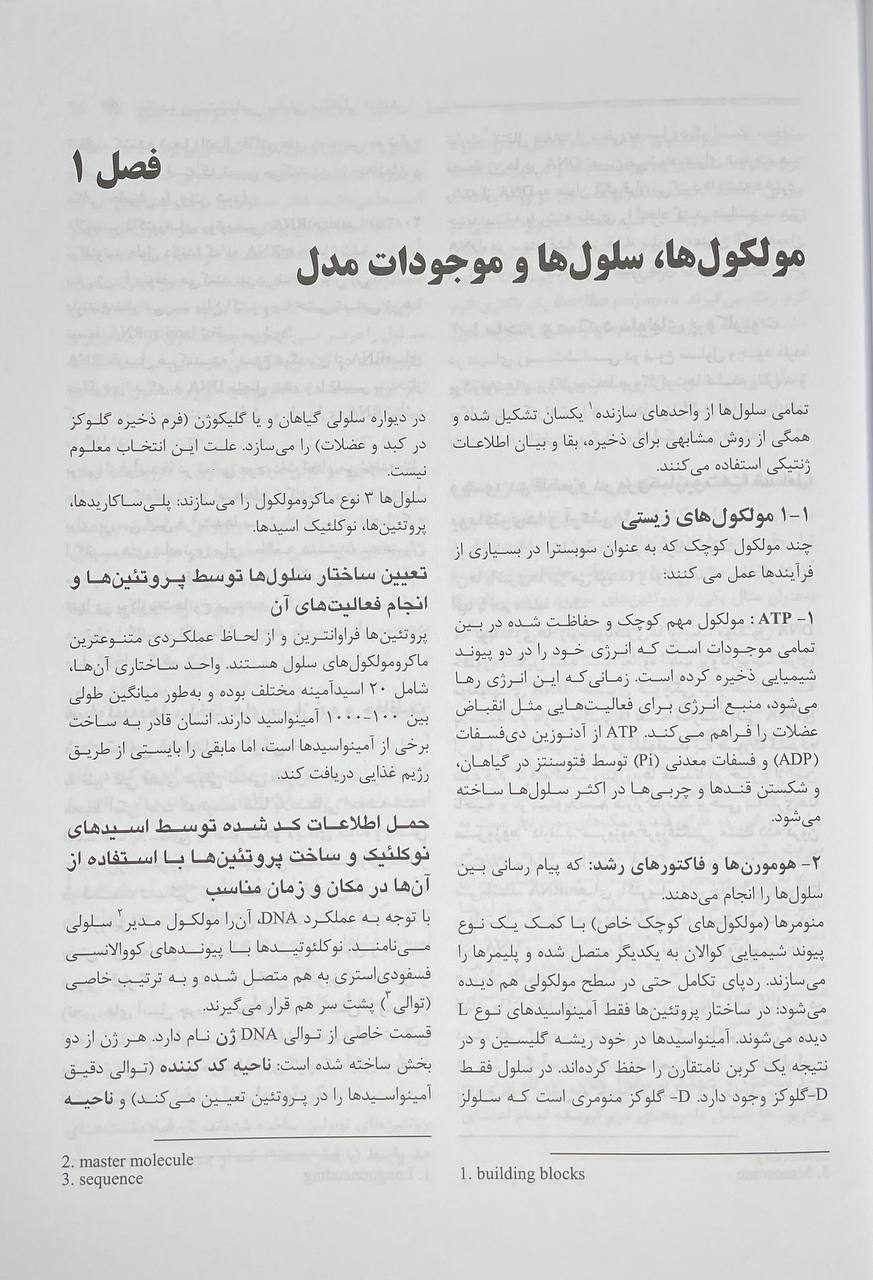 فصل ۱
مولکول‌ها، سلول‌ها و موجودات مدل
تمامی سلول‌ها از واحدهای سازنده۱ یکسان تشکیل شده و
همگی از روش مشابهی برای ذخیره، بقا و بیان اطلاعات
ژنتیکی استفاده می‌کنند.
۱-۱ مولکول‌های زیستی
چند مولکول کوچک که به عنوان سوبسترا در بسیاری از
فرآیندها عمل می کنند:
۱- ATP : مولکول مهم کوچک و حفاظت شده در بین
تمامی موجودات است که انرژی خود را در دو پیوند
شیمیایی ذخیره کرده است. زمانی‌که این انرژی رها
می‌شود، منبع انرژی برای فعالیت‌هایی مثل انقباض
عضلات را فراهم می‌کند. ATP از آدنوزین دی‌فسفات
(ADP) و فسفات معدنی (Pi) توسط فتوسنتز در گیاهان،
و شکستن قندها و چربی‌ها در اکثر سلول‌ها ساخته
می‌شود.
۲- هومورن‌ها و فاکتورهای رشد: که پیام رسانی بین
سلول‌ها را انجام می‌دهند.
منومرها (مولکول‌های کوچک خاص) با کمک یک نوع
پیوند شیمیایی کوالان به یکدیگر متصل شده و پلیمرها را
می‌سازند. ردپای تکامل حتی در سطح مولکولی هم دیده
می‌شود: در ساختار پروتئین‌ها فقط آمینواسیدهای نوع L
دیده می‌شوند. آمینواسیدها در خود ریشه گلیسین و در
نتیجه یک کربن نامتقارن را حفظ کرده‌اند. در سلول فقط
D-گلوکز وجود دارد. D- گلوکز منومری است که سلولز
1. building blocks
در دیواره سلولی گیاهان و یا گلیکوژن (فرم ذخیره گلوکز
در کبد و عضلات) را می‌سازد. علت این انتخاب معلوم
نیست.
سلول‌ها ۳ نوع ماکرومولکول را می‌سازند: پلی‌ساکاریدها،
پروتئین‌ها، نوکلئیک اسیدها.
تعیین ساختار سلول‌ها توسط پروتئین‌ها و
انجام فعالیت‌های آن
پروتئین‌ها فراوانترین و از لحاظ عملکردی متنوع‌ترین
ماکرومولکول‌های سلول هستند. واحد ساختاری آن‌ها،
شامل ۲۰ اسیدآمینه مختلف بوده و به‌طور میانگین طولی
بین ۱۰۰-۱۰۰۰ آمینواسید دارند. انسان قادر به ساخت
برخی از آمینواسیدها است، اما مابقی را بایستی از طریق
رژیم غذایی دریافت کند.
حمل اطلاعات کد شده توسط اسیدهای
نوکلئیک و ساخت پروتئین‌ها با استفاده از
آن‌ها در مکان و زمان مناسب
با توجه به عملکرد DNA، آن‌را مولکول مدیر۲ سلولی
می‌نامند. نوکلئوتیدها با پیوندهای کووالانسی
فسفودی‌استری به هم متصل شده و به ترتیب خاصی
(توالی۳) پشت سر هم قرار می‌گیرند.
قسمت خاصی از توالی DNA ژن نام دارد. هر ژن از دو
بخش ساخته شده است: ناحیه کد کننده (توالی دقیق
آمینواسیدها را در پروتئین تعیین می‌کند) و ناحیه
2. master molecule
3. sequence